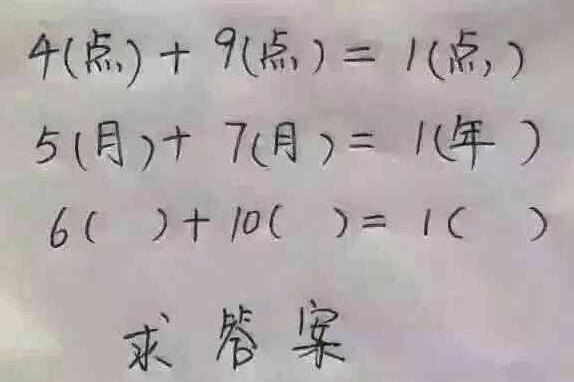 4(点)+9(点)=1(点)
5(月)+7(月)=1(年)
6( )+10( )=1( )
求答案